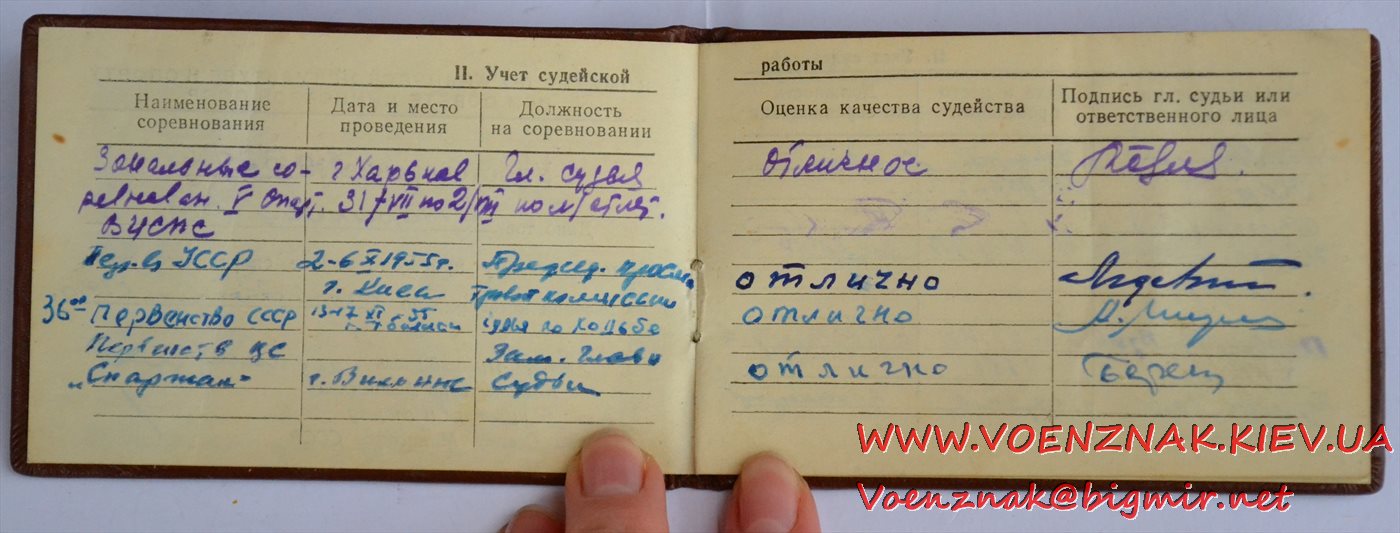 II. Учет судейской работы
Наименование соревнования
Дата и место проведения
Должность на соревновании
Оценка качества судейства
Подпись гл. судьи или ответственного лица
Зональные со- г. Харьков Гл. судья отличное
ревнован. V Спарт. 31/VII по 2/VIII по л/атлет.
ВЦСПС
УССР 2-6 X 1955г. Председ. отлично
г. Киев
36 Первенство СССР 13-17 XI 55 судья по ходьбе отлично
Первенств ЦС Зам. Главн
"Спартак" г. судьи отлично
WWW.VOENZNAK.KIEV.UA
Voenznak@bigmir.net